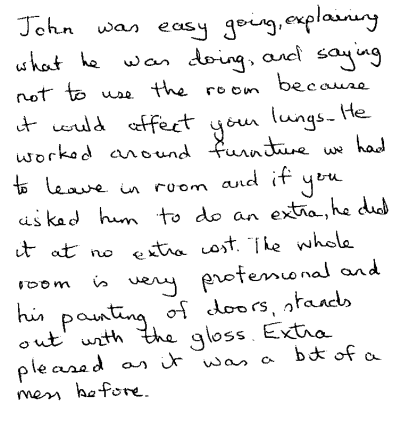 John was easy going, explaining
what he was doing, and saying
not to use the room because
it could affect your lungs. He
worked around furniture we had
to leave in room and if you
asked him to do an extra, he did
it at no extra cost. The whole
room is very professional and
his painting of doors, stands
out with the gloss. Extra
pleased as it was a bit of a
mess before.